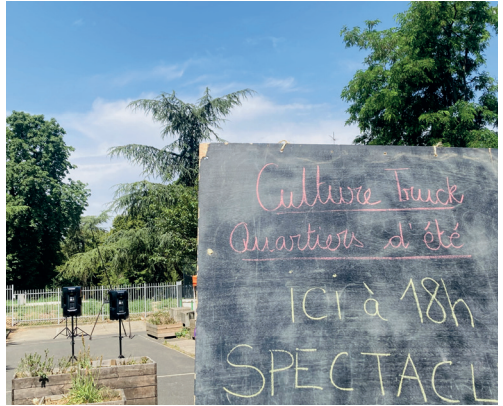 Culture truck
Quartiers d'été
ici à 18h
SPECTACL